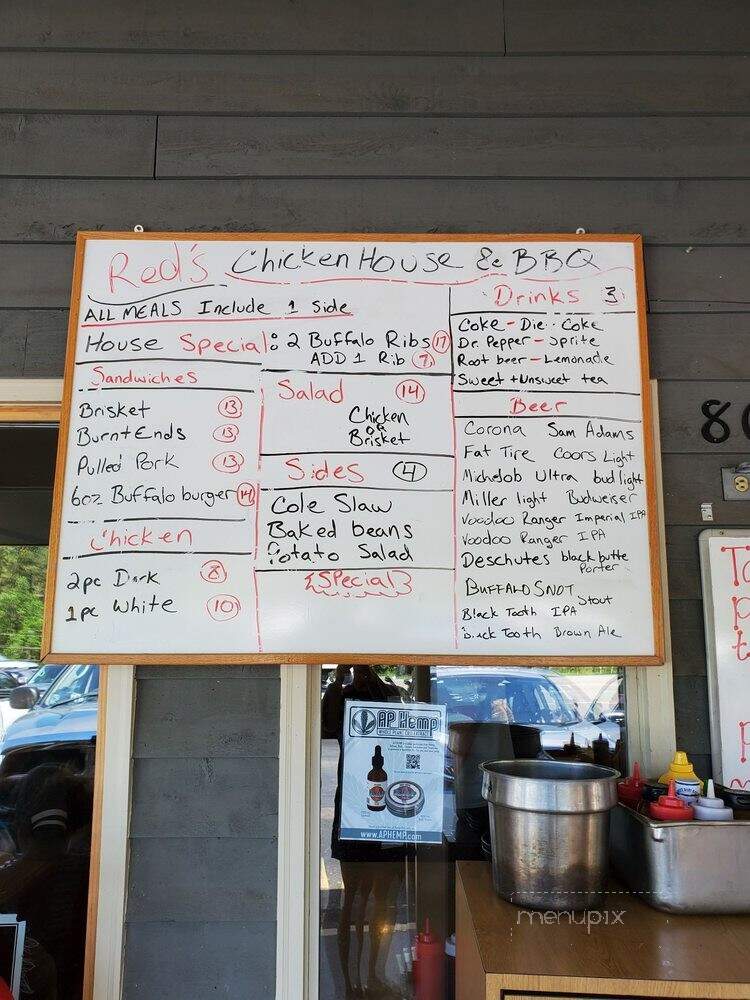 Red's Chicken House & BBQ
ALL MEALS Include 1 Side
House Special: 2 Buffalo Ribs 17
ADD 1 Rib 7
Sandwiches
Brisket 13
Burnt Ends 13
Pulled Pork 13
6oz Buffalo burger 14
Chicken
2pc Dark 8
1pc White 10
Salad 14
Chicken
OR
Brisket
Sides 4
Cole Slaw
Baked beans
Potato Salad
Special
Drinks 3
Coke - Die Coke
Dr. Pepper - Sprite
Root beer - Lemonade
Sweet + Unsweet tea
Beer
Corona Sam Adams
Fat Tire Coors Light
Michelob Ultra bud light
Miller light Budweiser
Voodoo Ranger Imperial IPA
Voodoo Ranger IPA
Deschutes black butte
Porter
BUFFALO SNOT Stout
Black Tooth IPA
Black Tooth Brown Ale
80
AP Hemp
www.APHEMP.com
menupix